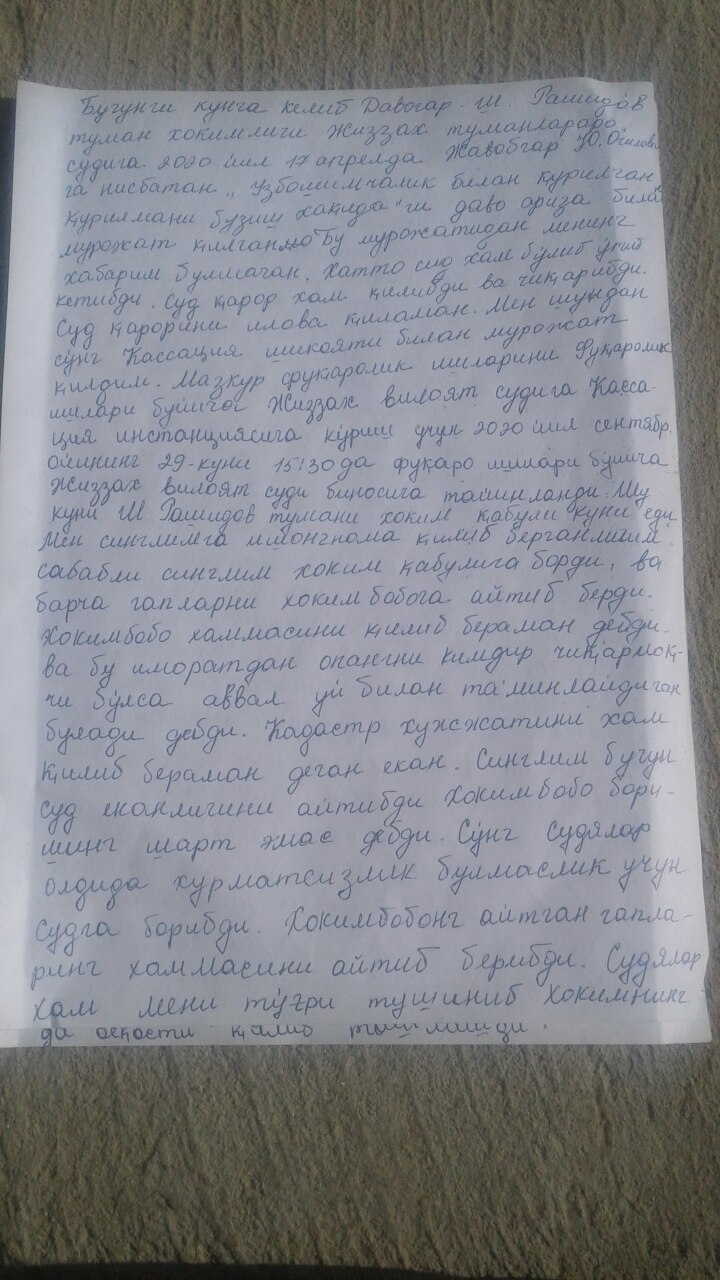 Бугунги кунга келиб Давогар Ш. Рашидов
туман хокимлиги Жиззах туманлараро
судига 2020 йил 17 апрелда Жавобгар Ю.
га нисбатан „ Узбошимчалик билан қурилган
қурилмани бузиш хақида"ги даво ариза билан
мурожат қилган Бу мурожатидан менинг
хабарим булмаган. Хатто суд хам бўлиб ўтиб
кетибди. Суд қарор хам қилибди ва чиқарибди.
Суд қарорини илова қиламан. Мен шундан
сўнг Кассация шикояти билан мурожат
қилдим. Мазкур фуқаролик ишларини Фуқаролик
ишлари буйича Жиззах вилоят судига Касса-
ция инстанциясига кўриш учун 2020 йил сентябр
ойининг 29-куни 15:30 да фуқаро ишлари бўйича
Жиззах вилоят суди биносига тайинланди. Шу
куни Ш Рашидов тумани хоким қабули куни еди.
Мен синглимга ишонгнома қилиб берганлигим
сабабли синглим хоким қабулига борди, ва
барча гапларни хоким бобога айтиб берди.
Хокимбобо хаммасини қилиб бераман дебди.
ва бу иморатдан опангни кимдир чиқармоқ-
чи бўлса аввал уй билан таминлайдиган
булади дебди. Кадастр хужжатини хам
қилиб бераман деган екан. Синглим бугун
суд еканлигини айтибди Хокимбобо бори-
шинг шарт эмас дебди. Сўнг судялар
олдида хурматсизлик булмаслик учун
судга борибди. Хокимбобонг айтган гапла-
ринг хаммасини айтиб берибди. Судялар
хам мени тўғри тушиниб хокимнинг
да қилиб